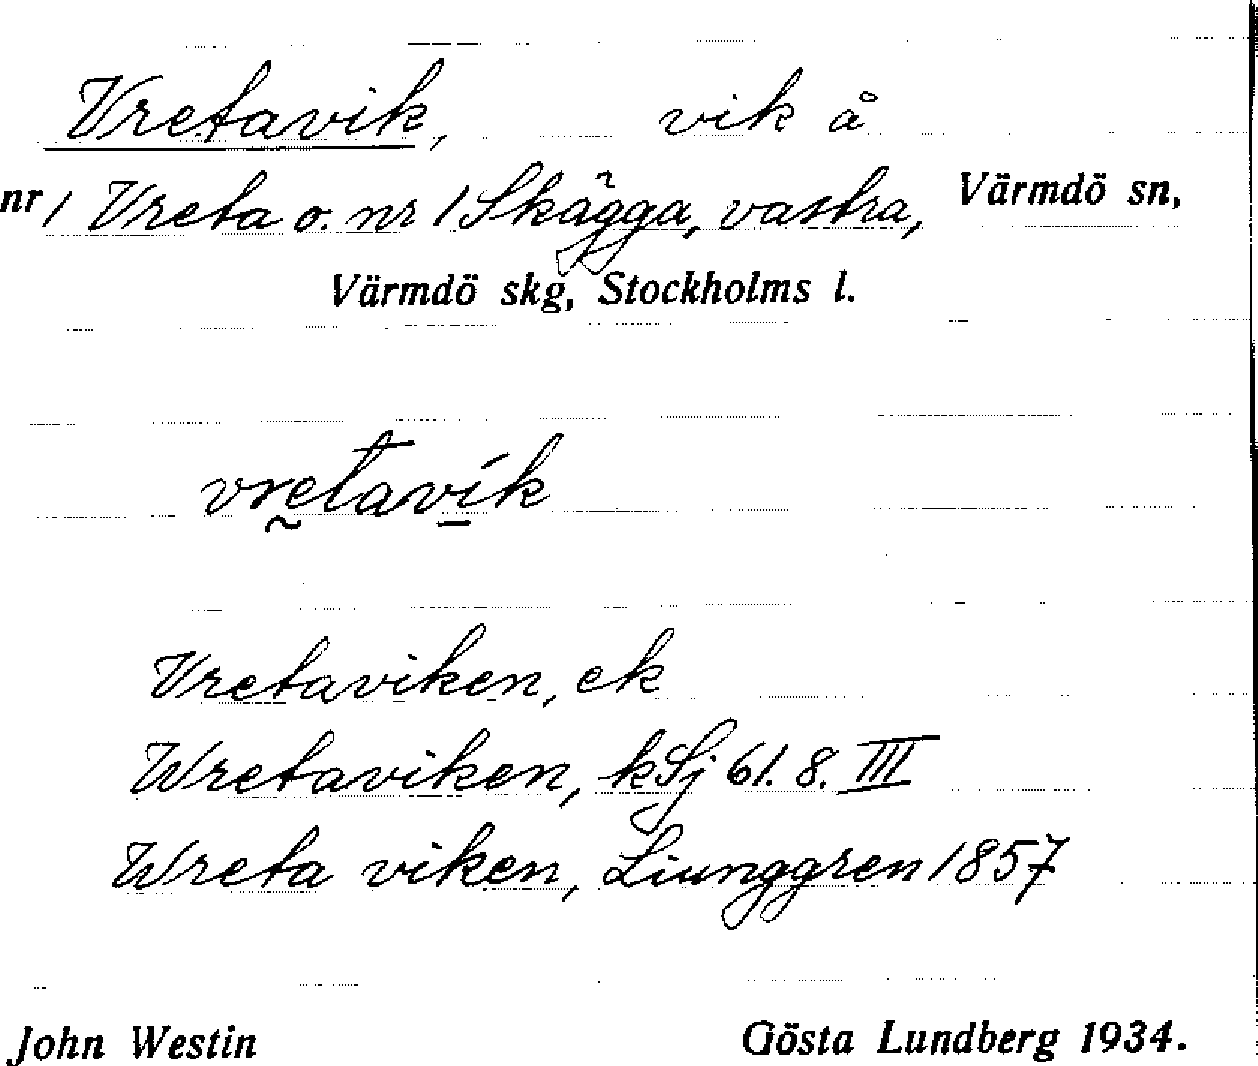 Vretavik, vik å
nr 1 Vreta o. nr 1 Skägga, västra, Värmdö sn,
Värmdö skg, Stockholms l.
vretavik
Vretaviken, ek
Wretaviken, kSj 61. 8. III
Wreta viken, Liunggren 1857
John Westin Gösta Lundberg 1934.